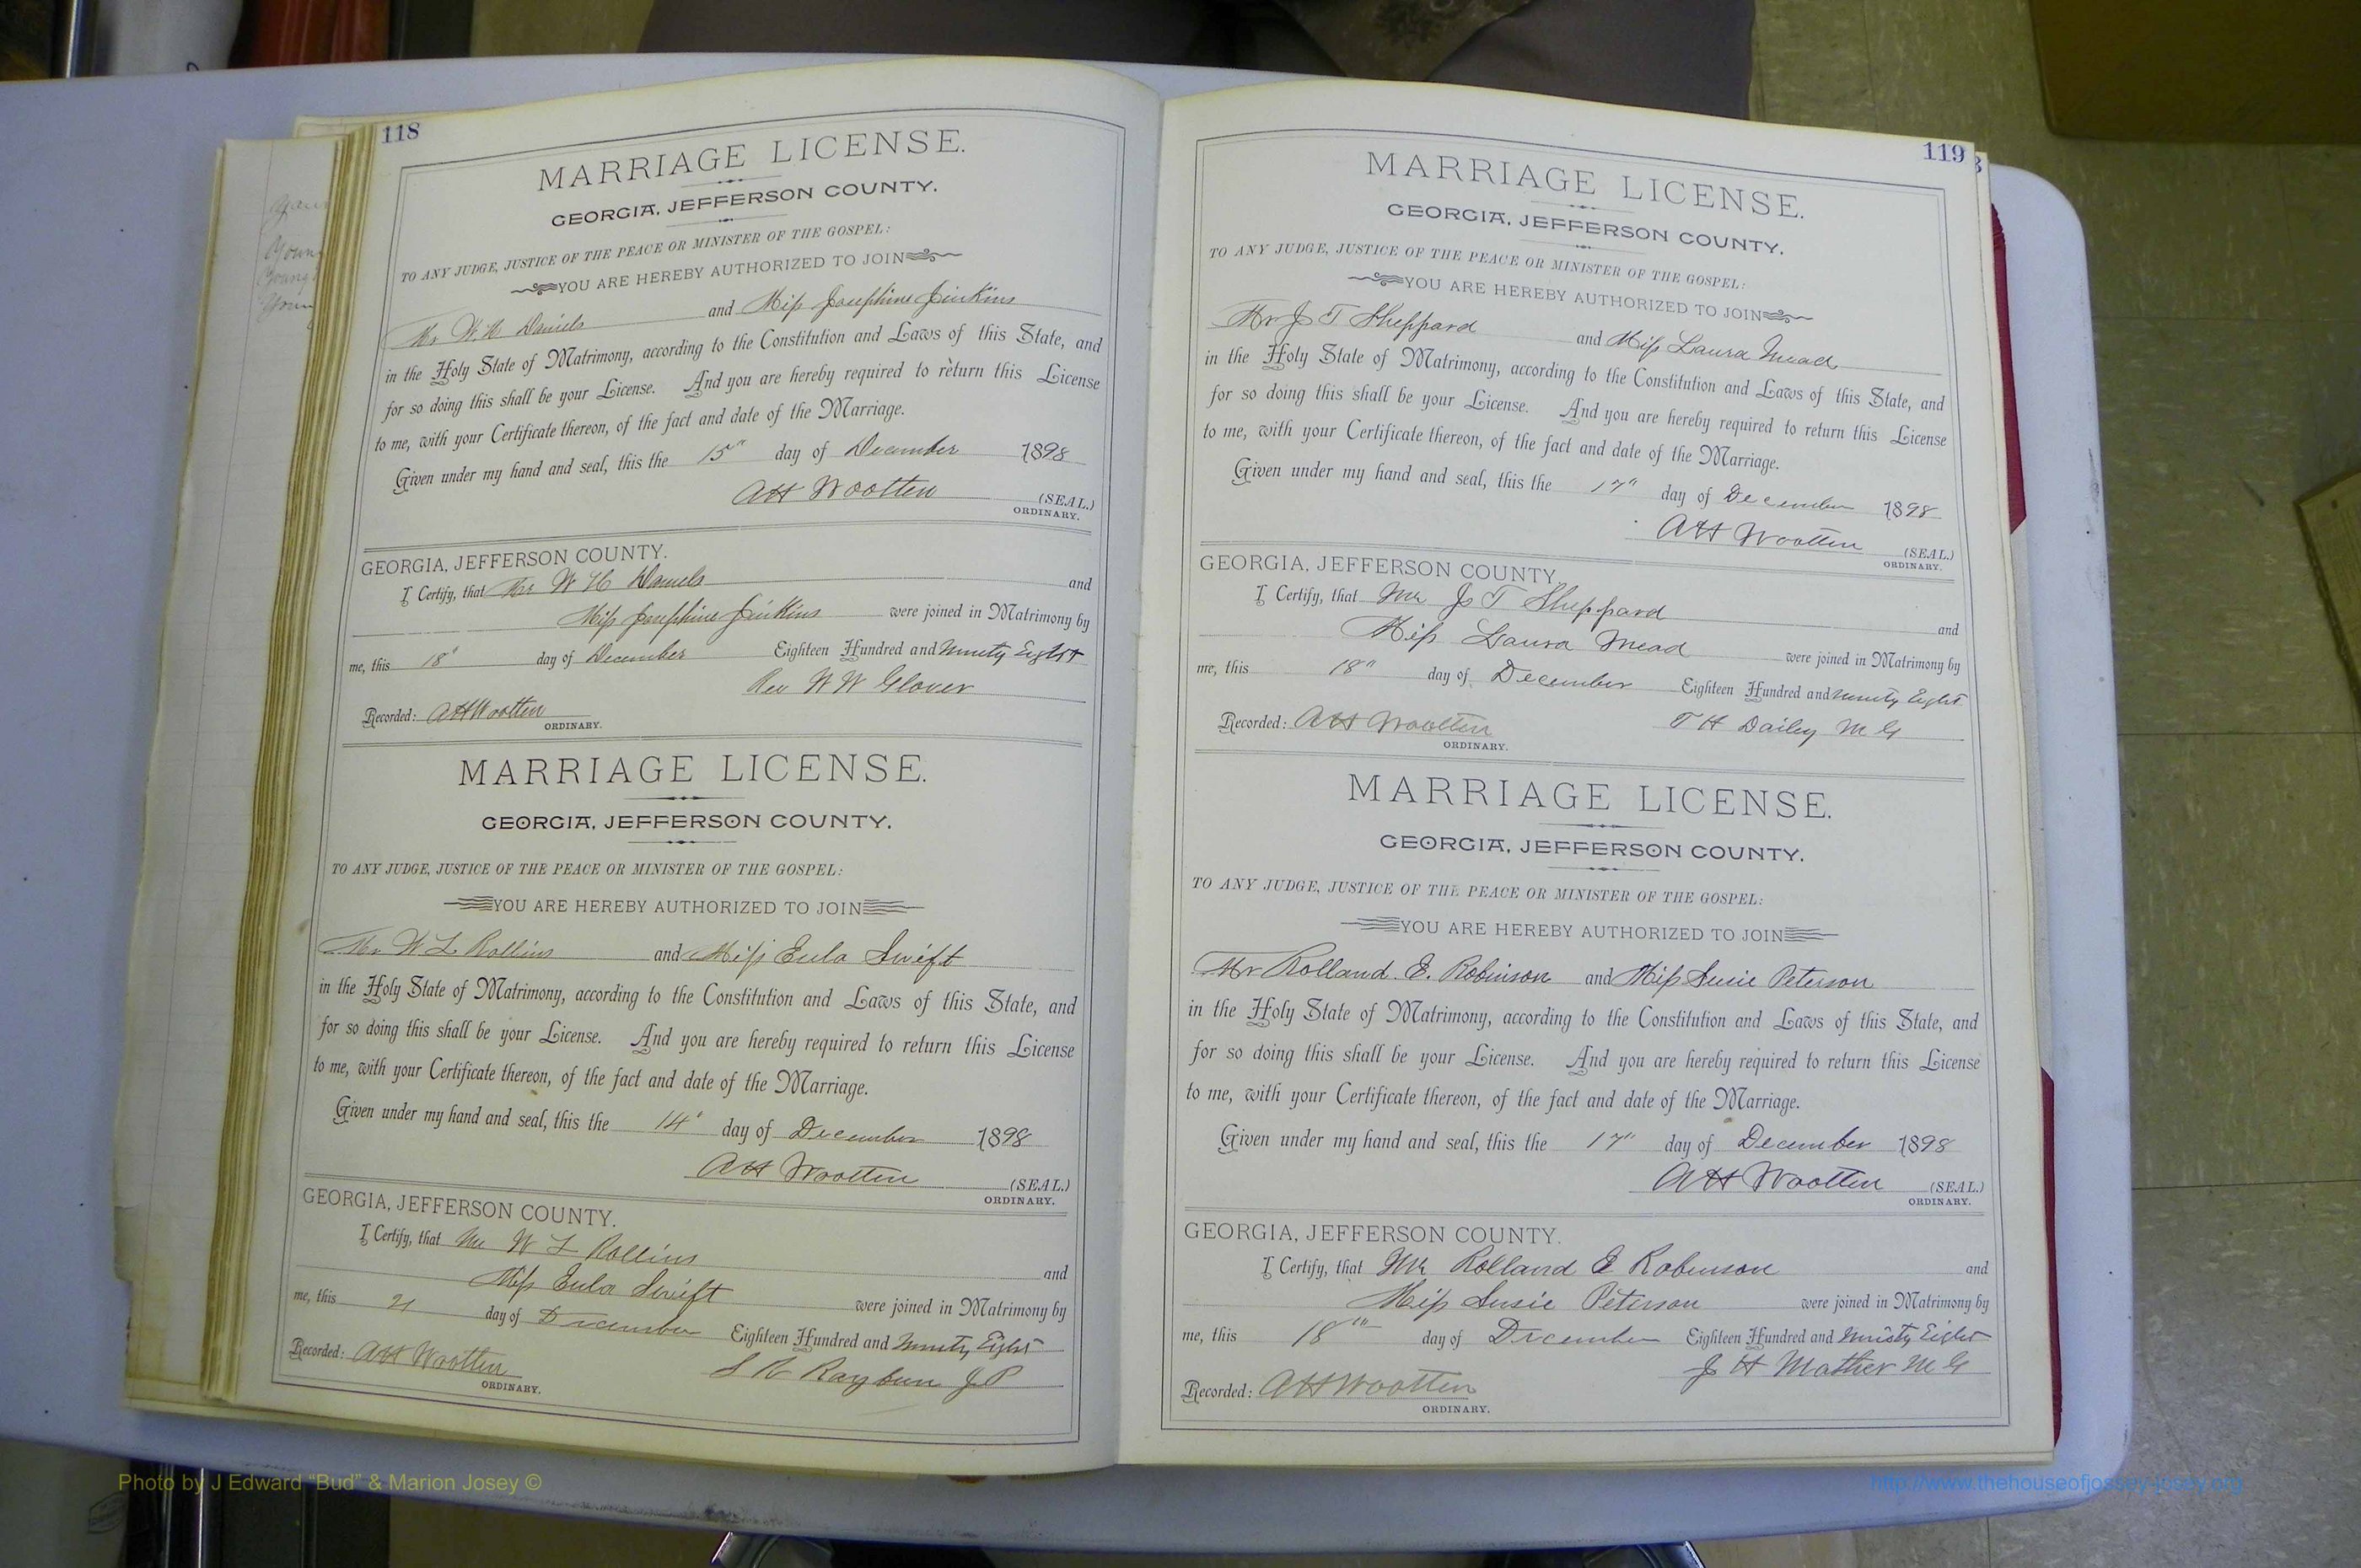 118
MARRIAGE LICENSE.
GEORGIA, JEFFERSON COUNTY.
TO ANY JUDGE, JUSTICE OF THE PEACE OR MINISTER OF THE GOSPEL:
YOU ARE HEREBY AUTHORIZED TO JOIN
Mr W. H. Daniels and Miss Josephine Jinkins
in the Holy State of Matrimony, according to the Constitution and Laws of this State, and
for so doing this shall be your License. And you are hereby required to return this License
to me, with your Certificate thereon, of the fact and date of the Marriage.
Given under my hand and seal, this the 15" day of December 1898
AH Wootten (SEAL.)
ORDINARY.
GEORGIA, JEFFERSON COUNTY.
I Certify, that Mr W H Daniels and
Miss Josephine Jinkins were joined in Matrimony by
me, this 18" day of December Eighteen Hundred and Ninety Eight
Rev W W Glover
Recorded: AH Wootten
ORDINARY.
MARRIAGE LICENSE.
GEORGIA, JEFFERSON COUNTY.
TO ANY JUDGE, JUSTICE OF THE PEACE OR MINISTER OF THE GOSPEL:
YOU ARE HEREBY AUTHORIZED TO JOIN
Mr W L Rollins and Miss Eula Swift
in the Holy State of Matrimony, according to the Constitution and Laws of this State, and
for so doing this shall be your License. And you are hereby required to return this License
to me, with your Certificate thereon, of the fact and date of the Marriage.
Given under my hand and seal, this the 14" day of December 1898
AH Wootten (SEAL.)
ORDINARY.
GEORGIA, JEFFERSON COUNTY.
I Certify, that Mr W L Rollins
and
Miss Eula Swift were joined in Matrimony by
me, this 21 day of December Eighteen Hundred and Ninety Eight
Recorded: AH Wootten
ORDINARY.
S R Rayburn JP
119
MARRIAGE LICENSE.
GEORGIA, JEFFERSON COUNTY.
TO ANY JUDGE, JUSTICE OF THE PEACE OR MINISTER OF THE GOSPEL:
YOU ARE HEREBY AUTHORIZED TO JOIN
Mr J T Sheppard and Miss Laura Mead
in the Holy State of Matrimony, according to the Constitution and Laws of this State, and
for so doing this shall be your License. And you are hereby required to return this License
to me, with your Certificate thereon, of the fact and date of the Marriage.
Given under my hand and seal, this the 17" day of December 1898
AH Wootten (SEAL.)
ORDINARY.
GEORGIA, JEFFERSON COUNTY.
I Certify, that Mr J T Sheppard
and
Miss Laura Mead were joined in Matrimony by
me, this 18" day of December Eighteen Hundred and Ninety Eight
Recorded: AH Wootten T H Dailey M G
ORDINARY.
MARRIAGE LICENSE.
GEORGIA, JEFFERSON COUNTY.
TO ANY JUDGE, JUSTICE OF THE PEACE OR MINISTER OF THE GOSPEL:
YOU ARE HEREBY AUTHORIZED TO JOIN
Mr Rolland E. Robinson and Miss Susie Peterson
in the Holy State of Matrimony, according to the Constitution and Laws of this State, and
for so doing this shall be your License. And you are hereby required to return this License
to me, with your Certificate thereon, of the fact and date of the Marriage.
Given under my hand and seal, this the 17" day of December 1898
AH Wootten (SEAL.)
ORDINARY.
GEORGIA, JEFFERSON COUNTY.
I Certify, that Mr Rolland E Robinson and
Miss Susie Peterson were joined in Matrimony by
me, this 18th day of December Eighteen Hundred and Ninety Eight
J H Mather M G
Recorded: AH Wootten
ORDINARY.
Photo by J Edward “Bud” & Marion Josey ©
http://www.thehouseofjossey-josey.org